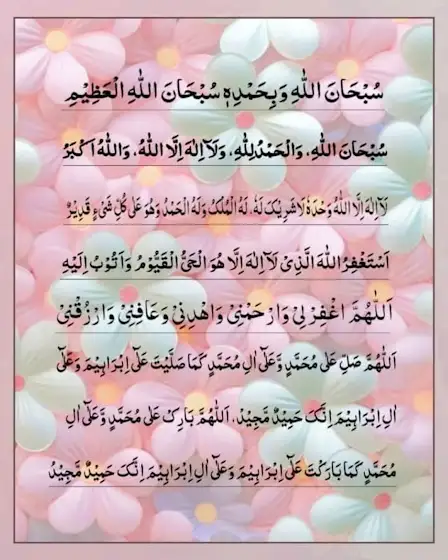 سُبْحَانَ اللّٰهِ وَبِحَمْدِهٖ سُبْحَانَ اللّٰهِ الْعَظِيْمِ
سُبْحَانَ اللّٰهِ، وَالْحَمْدُلِلّٰهِ، وَلَآ اِلٰهَ اِلَّا اللّٰهُ، وَاللّٰهُ اَكْبَرُ
لَآ اِلٰهَ اِلَّا اللّٰهُ وَحْدَهٗ لَا شَرِيْكَ لَهٗ، لَهُ الْمُلْكُ وَلَهُ الْحَمْدُ وَهُوَ عَلٰى كُلِّ شَىْءٍ قَدِيْرٌ
اَسْتَغْفِرُ اللّٰهَ الَّذِىْ لَآ اِلٰهَ اِلَّا هُوَ الْحَىُّ الْقَيُّوْمُ وَاَتُوْبُ اِلَيْهِ
اَللّٰهُمَّ اغْفِرْلِىْ وَارْحَمْنِىْ وَاهْدِنِىْ وَعَافِنِىْ وَارْزُقْنِىْ
اَللّٰهُمَّ صَلِّ عَلٰى مُحَمَّدٍ وَّعَلٰٓى اٰلِ مُحَمَّدٍ كَمَا صَلَّيْتَ عَلٰٓى اِبْرَاهِيْمَ وَعَلٰٓى
اٰلِ اِبْرَاهِيْمَ اِنَّكَ حَمِيْدٌ مَّجِيْدٌ، اَللّٰهُمَّ بَارِكْ عَلٰى مُحَمَّدٍ وَّعَلٰٓى اٰلِ
مُحَمَّدٍ كَمَا بَارَكْتَ عَلٰٓى اِبْرَاهِيْمَ وَعَلٰٓى اٰلِ اِبْرَاهِيْمَ اِنَّكَ حَمِيْدٌ مَّجِيْدٌ